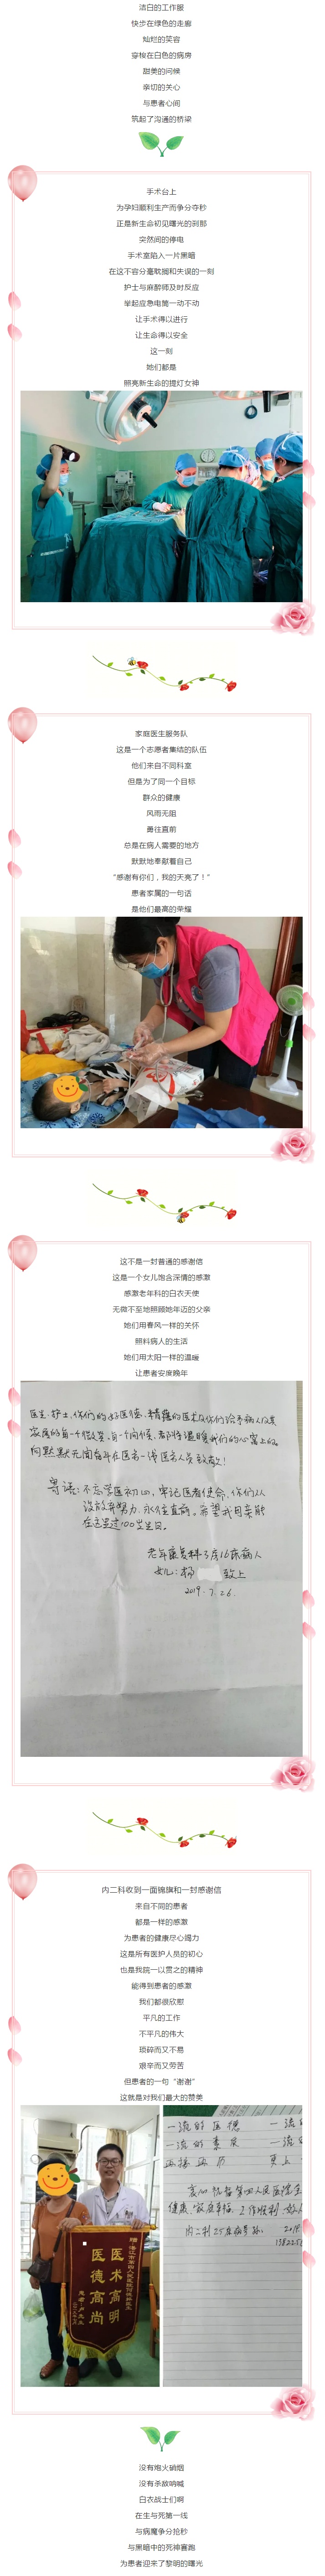 洁白的工作服
快步在绿色的走廊
灿烂的笑容
穿梭在白色的病房
甜美的问候
亲切的关心
与患者心间
筑起了沟通的桥梁
手术台上
为孕妇顺利生产而争分夺秒
正是新生命初见曙光的刹那
突然间的停电
手术室陷入一片黑暗
在这不容分毫耽搁和失误的一刻
护士与麻醉师及时反应
举起应急电筒一动不动
让手术得以进行
让生命得以安全
这一刻
她们都是
照亮新生命的提灯女神
家庭医生服务队
这是一个志愿者集结的队伍
他们来自不同科室
但是为了同一个目标
群众的健康
风雨无阻
勇往直前
总是在病人需要的地方
默默地奉献着自己
“感谢有你们，我的天亮了！”
患者家属的一句话
是他们最高的荣耀
这不是一封普通的感谢信
这是一个女儿饱含深情的感激
感激老年科的白衣天使
无微不至地照顾她年迈的父亲
她们用春风一样的关怀
照料病人的生活
她们用太阳一样的温暖
让患者安度晚年
医生、护士,你们的好医德,精湛的医术及你们给予病人及其
家属的每一个微笑,每一个问候,都将温暖我们的心窝上的。
向默默无闻奋斗在医务一线医务人员致敬!
寄语:不忘学医初心,牢记医者使命,你们从
没放弃努力,永往直前。希望我母亲能
在这里过100岁生日。
老年康复科3房16床病人
女儿:杨 致上
2019.7.26.
内二科收到一面锦旗和一封感谢信
来自不同的患者
都是一样的感激
为患者的健康尽心竭力
这是所有医护人员的初心
也是我院一以贯之的精神
能得到患者的感激
我们都很欣慰
平凡的工作
不平凡的伟大
琐碎而又不易
艰辛而又劳苦
但患者的一句“谢谢”
这就是对我们最大的赞美
医术高明
医德高尚
一流的医德
一流的素质
再接再厉
衷心祝愿第四人民医院全
健康,家庭幸福,工作顺利
内二科25床病号
没有炮火硝烟
没有杀敌呐喊
白衣战士们啊
在生与死第一线
与病魔争分抢秒
与黑暗中的死神赛跑
为患者迎来了黎明的曙光